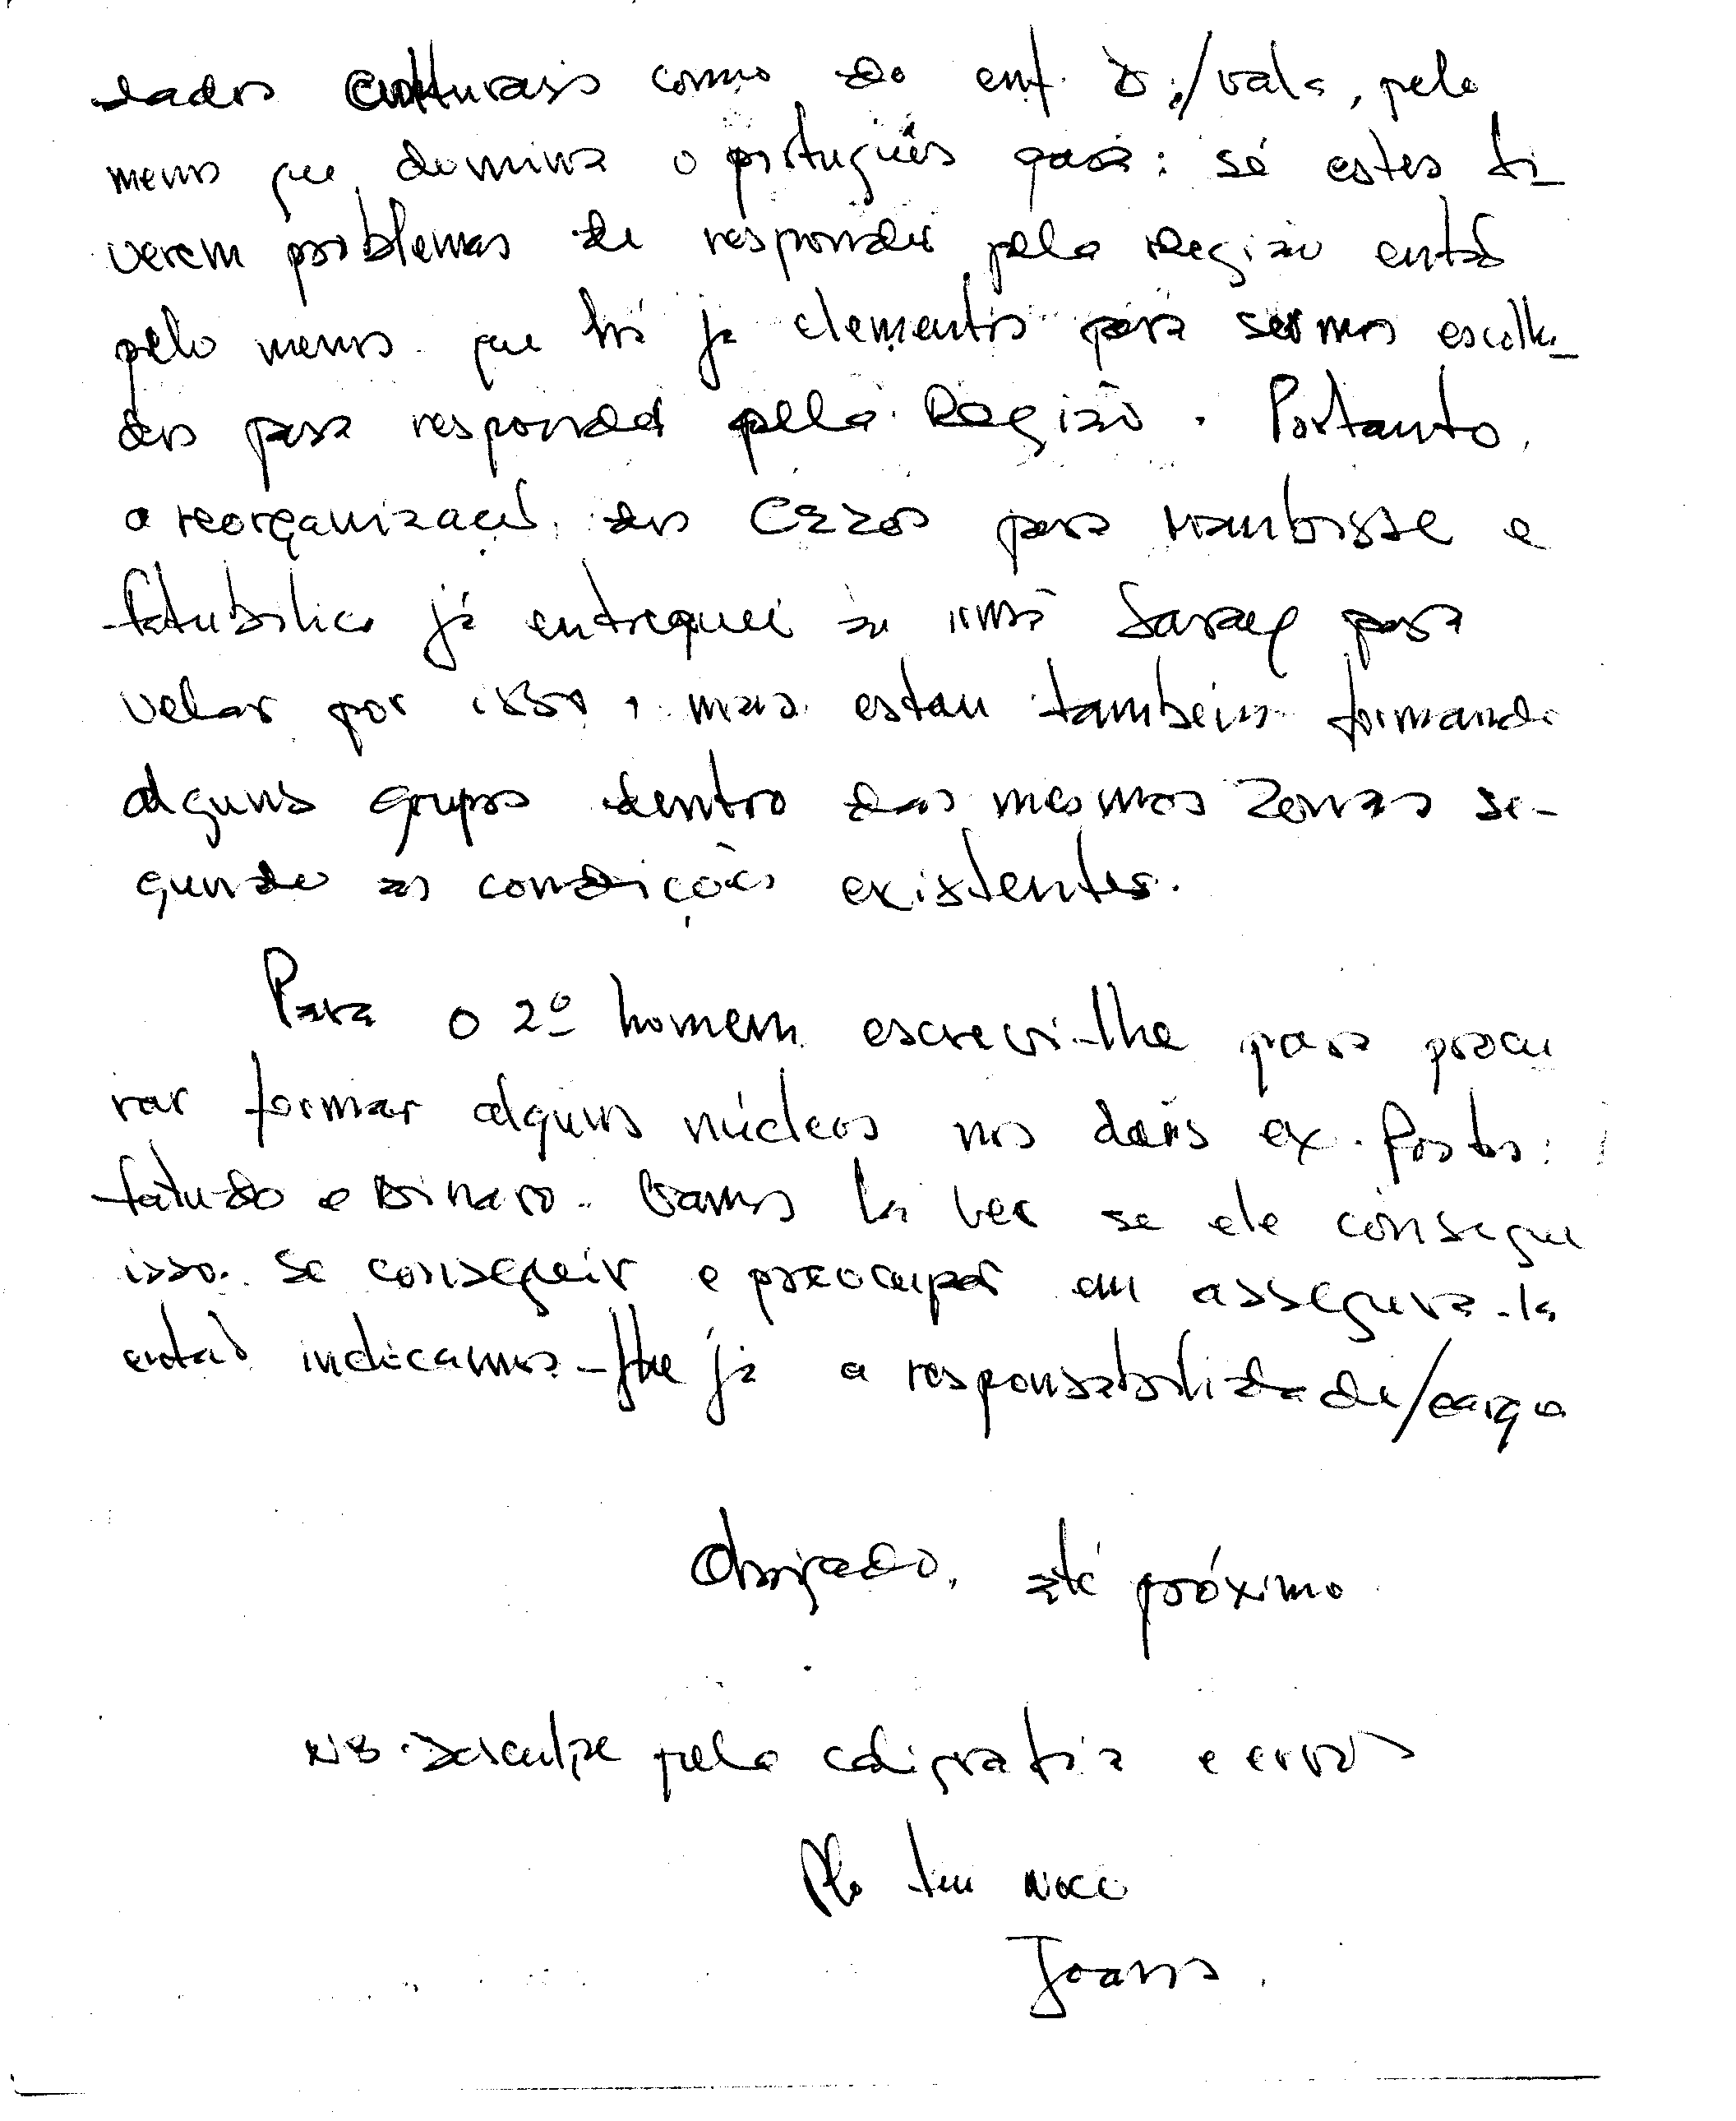 dados culturais como do enf. D:/vala, pelo
menos que domina o português para: sé estes ti_
verem problemas de responder pela região entaõ
pelo menos que há ja elementos para sermos escolhi_
dos para responder pela Região. Portanto,
a reorganizaçaõ dos Cezos para Maubisse e
fatubilico já entreguei ao irmã Saray para
velar por isso, mas estou também formando
alguns grupos dentro das mesmas zonas se-
gundo as condições existentes.
Para o 2º homem escrevi-lhe para procu
rar formar alguns núcleos nos dois ex. Postos:
fatu-do e Binaro. Vamos la ver se ele consegue
isso. Se conseguir e preocupar em assegura-la
entaõ indicamos-lhe já a responsabilidade/cargo
Obrigado, até próximo
NB. Desculpe pela caligrafia e erros
Do teu
Joans.